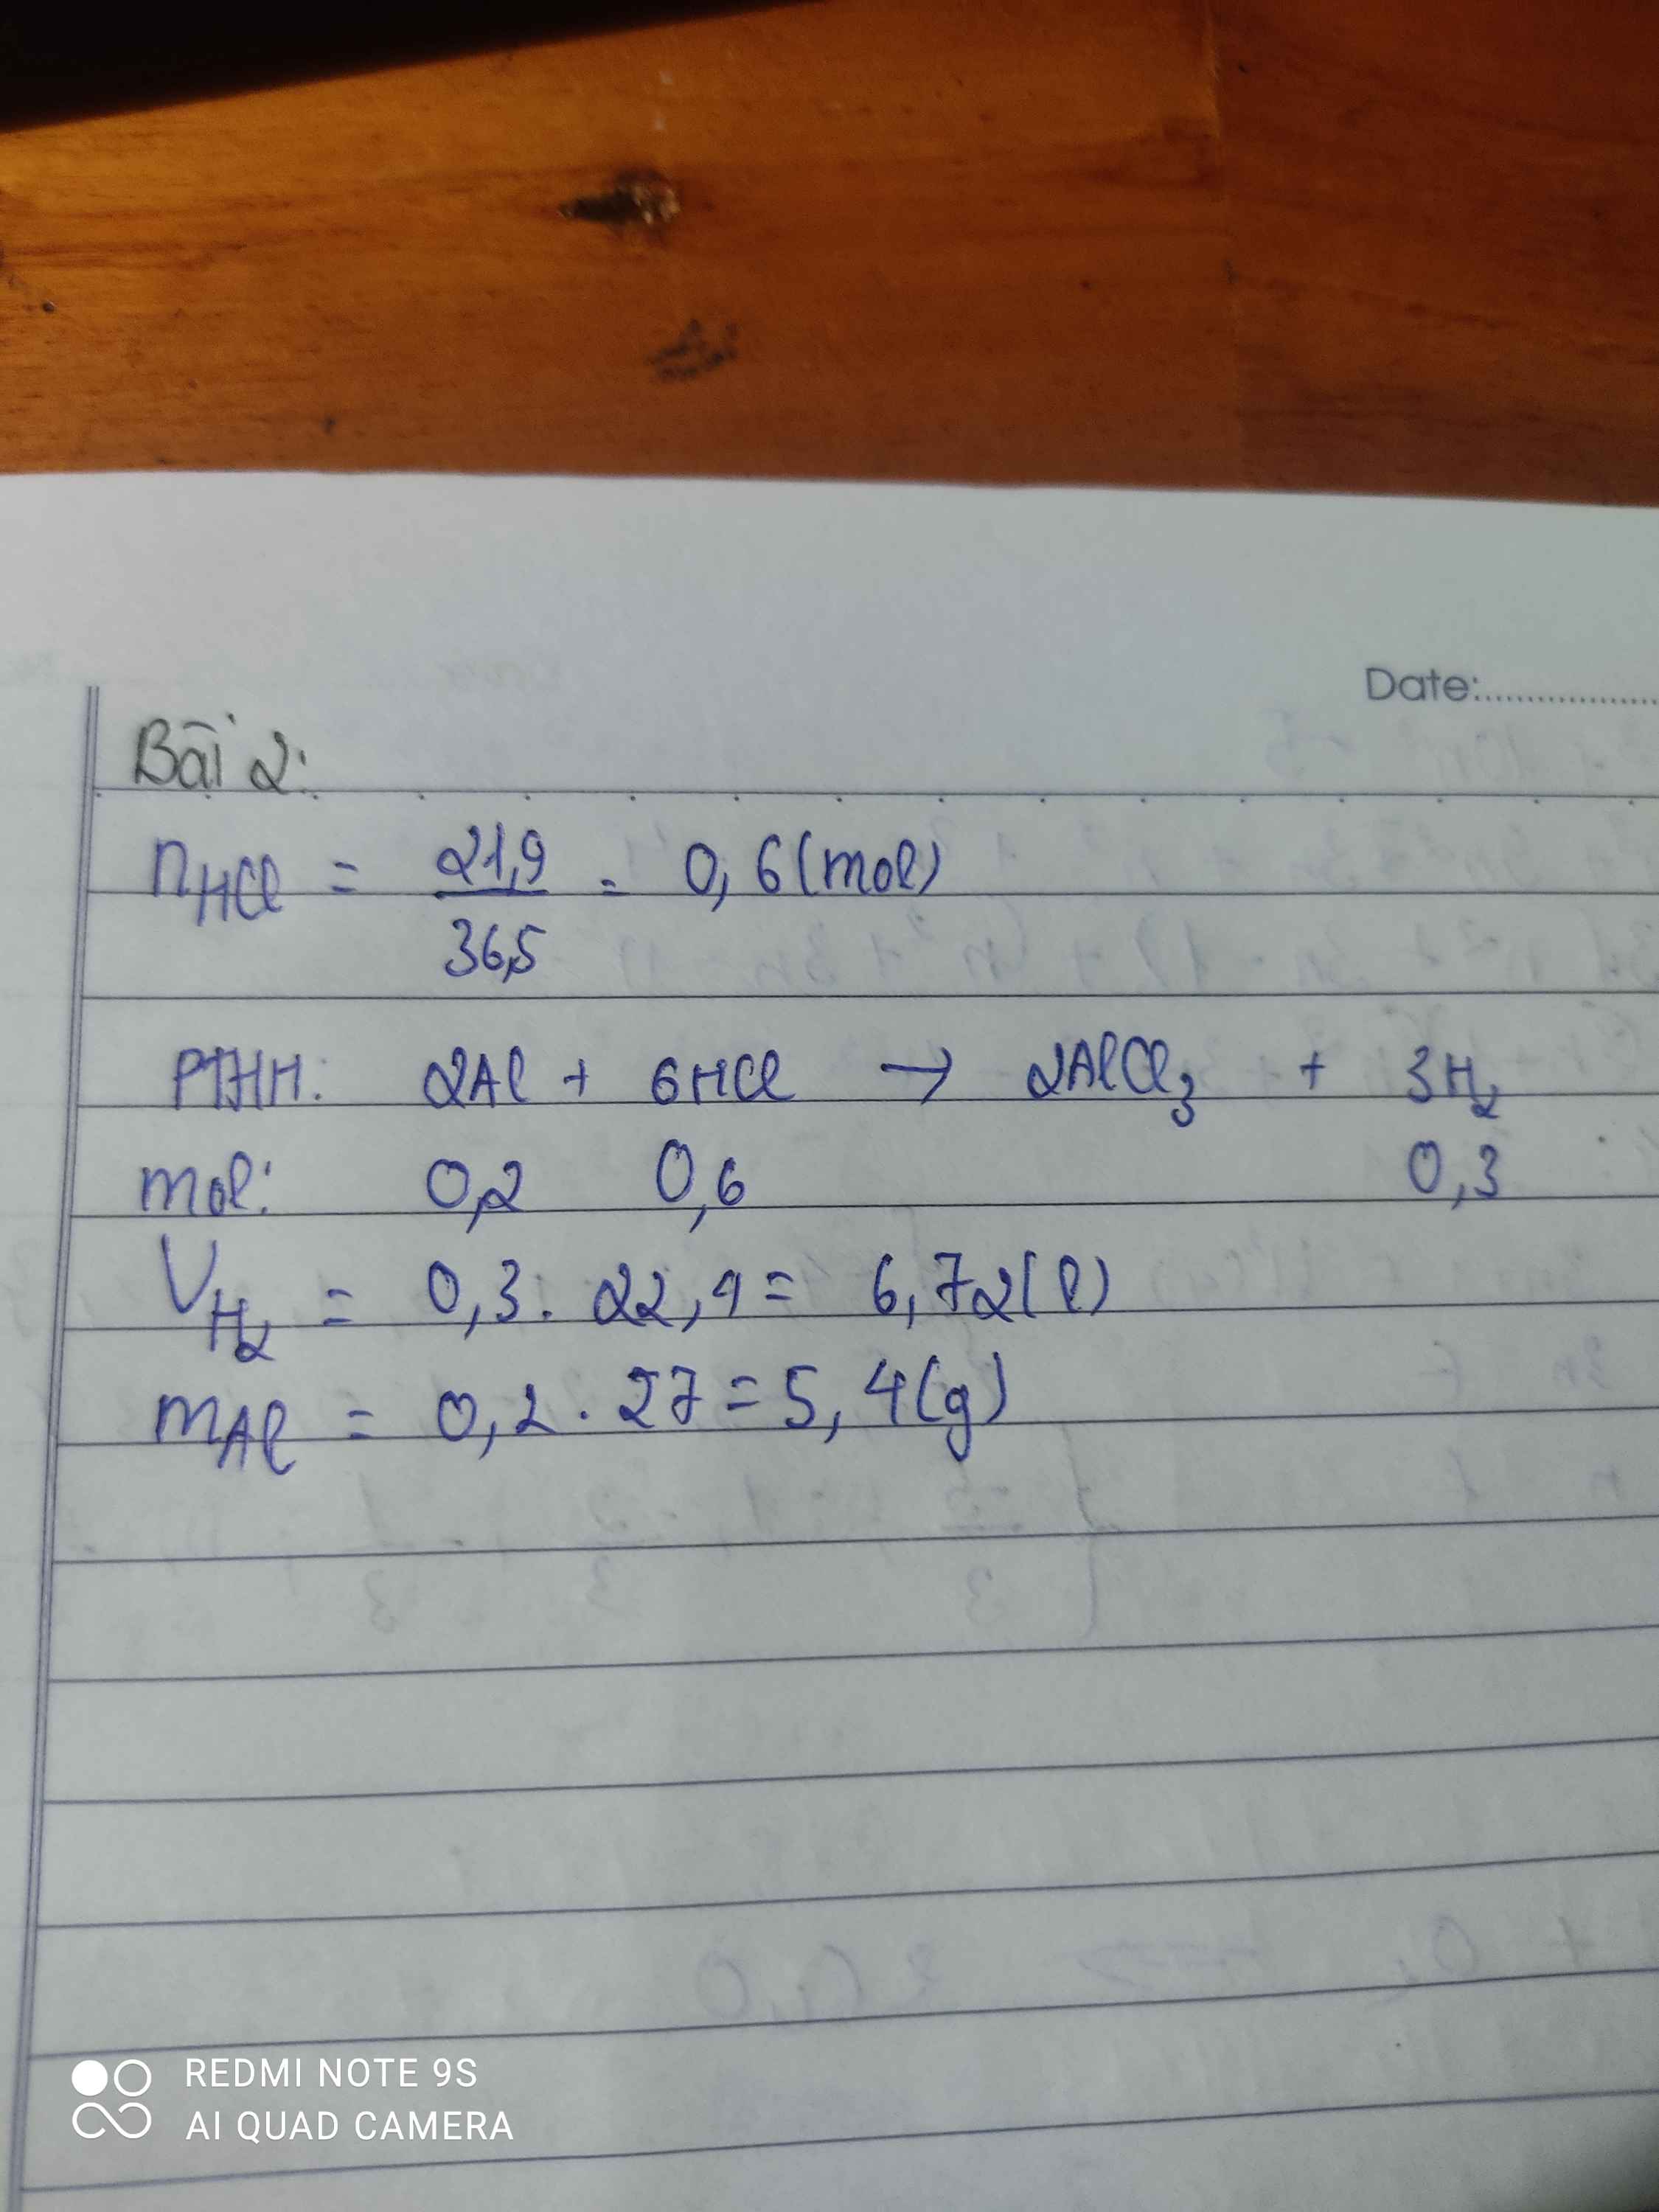 Date:..................
Bài 2:
nHCl = 21,9 / 36,5 = 0,6 (mol)
PTHH: 2Al + 6HCl → 2AlCl₃ + 3H₂
mol: 0,2 0,6 0,3
VH₂ = 0,3 . 22,4 = 6,72 (l)
mAl = 0,2 . 27 = 5,4 (g)
REDMI NOTE 9S
AI QUAD CAMERA